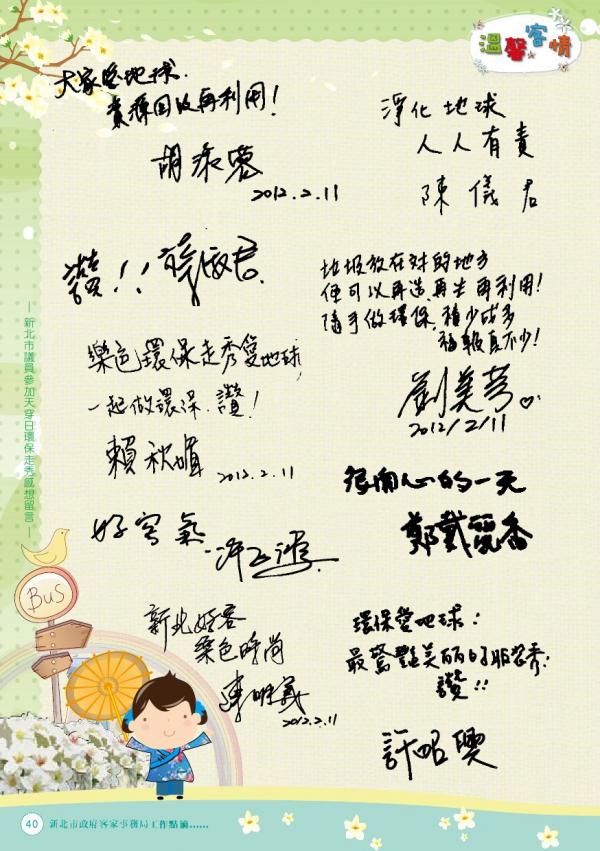 溫馨客情
大家愛地球.
資源回收再利用!
胡淑蓉
2012.2.11
淨化地球
人人有責
陳儀君
讚!! 蔣根煌
垃圾放在對的地方
便可以再造.再生再利用!
隨手做環保.積少成多
福報真不少!
劉美芳
2012/2/11
樂色環保走秀愛地球
一起做環保.讚!
賴秋媚
2012.2.11
很開心的一天
鄭戴麗香
好客氣
新北好客
樂色時尚
陳明義
2012.2.11
環保愛地球:
最驚艷美麗的服裝秀.
讚!!
許昭興
—新北市議員參加天穿日環保走秀感想留言—
BUS
40 新北市政府客家事務局工作點滴......